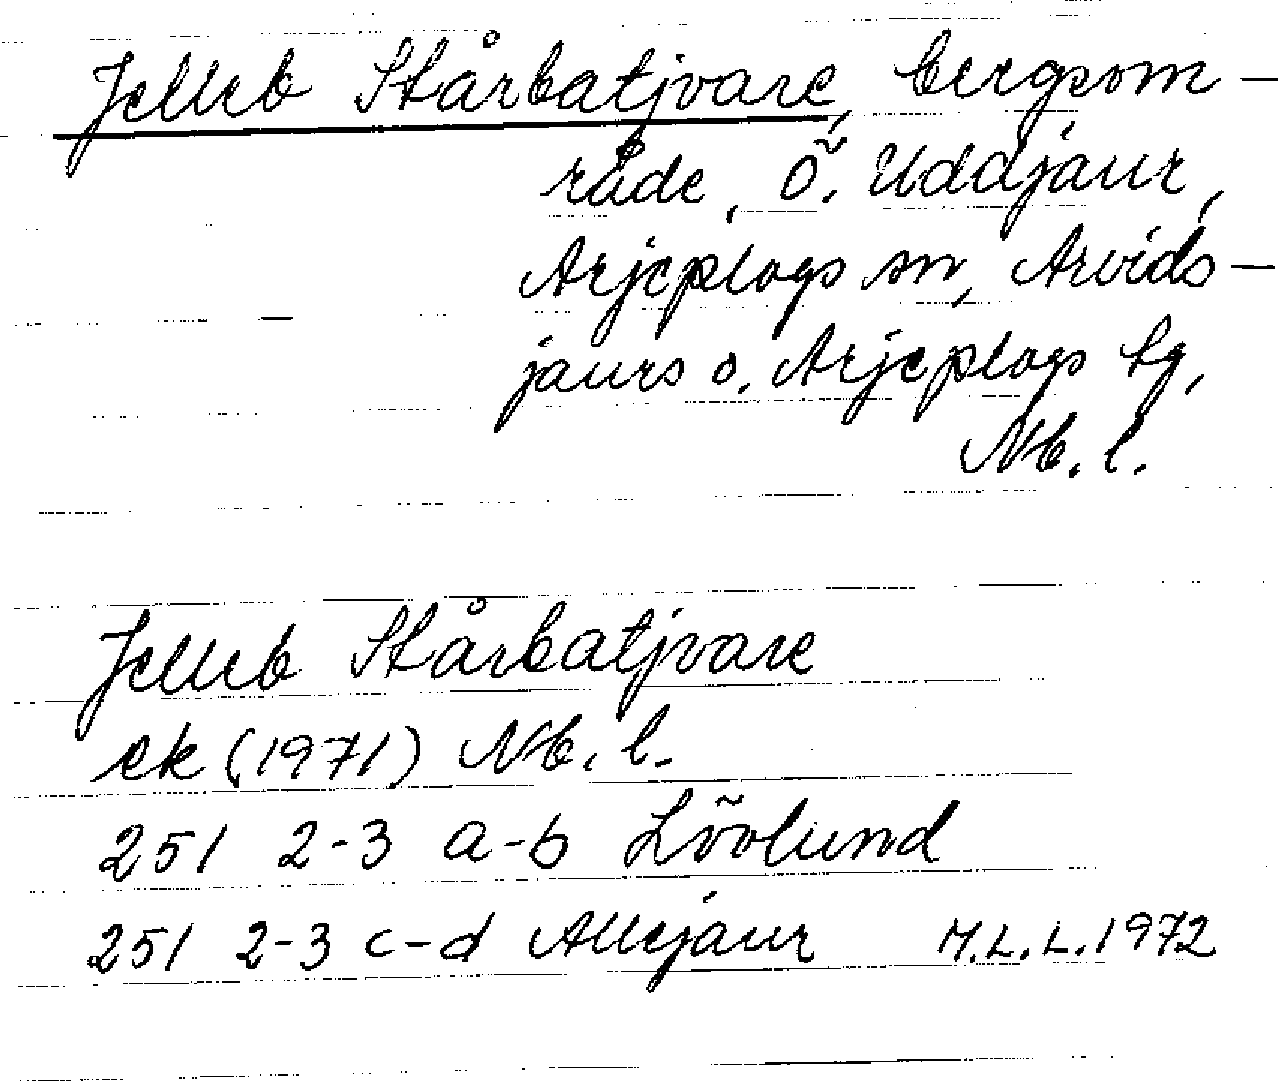 Jelleb Stårbatjvare, bergsom-
råde, Ö. Uddjaur,
Arjeplogs sn, Arvids-
jaurs o. Arjeplogs tg,
Nb. l.
Jelleb Stårbatjvare
ek (1971) Nb. l.
251 2-3 a-b Lövlund
251 2-3 c-d Allejaur M.L.L. 1972